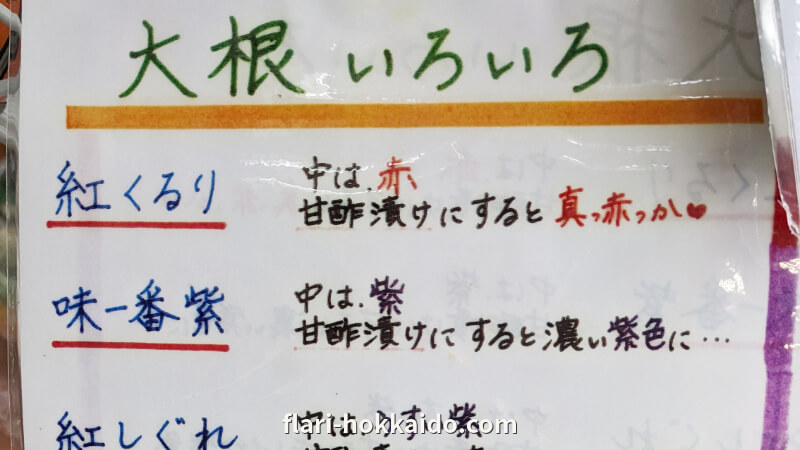 大根いろいろ
紅くるり
中は、赤
甘酢漬けにすると真っ赤っか♥
味一番紫
中は、紫
甘酢漬けにすると濃い紫色に…
紅しぐれ
中はうす紫
flari-hokkaido.com